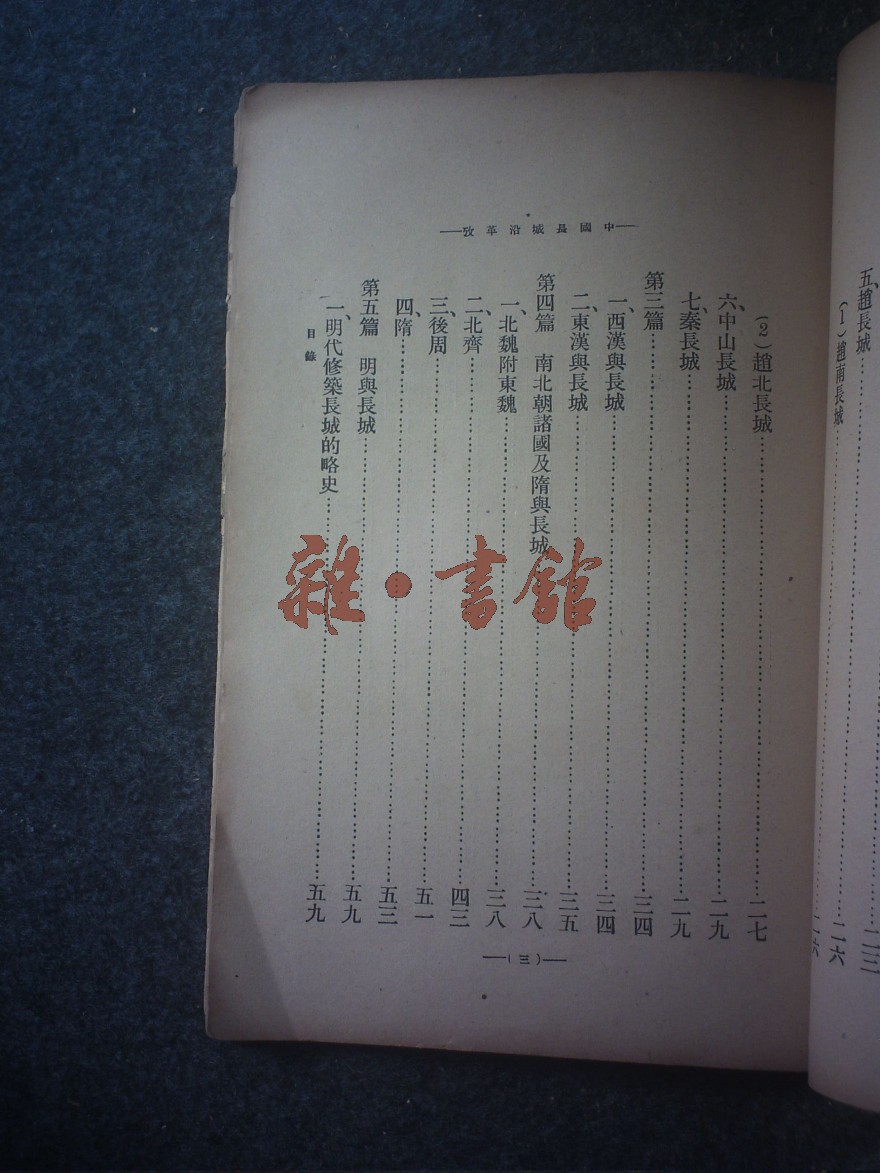 二三
五、趙長城……二六
(1)趙南長城……二六
中國長城沿革攷
(2)趙北長城……二七
六、中山長城……二九
七、秦長城……二九
第三篇……三四
一、西漢與長城……三四
二、東漢與長城……三五
第四篇 南北朝諸國及隋與長城……三八
一、北魏附東魏……三八
二、北齊……四三
三、後周……五一
四、隋……五三
第五篇 明與長城……五九
一、明代修築長城的略史……五九
目錄
(三)
雜·書館